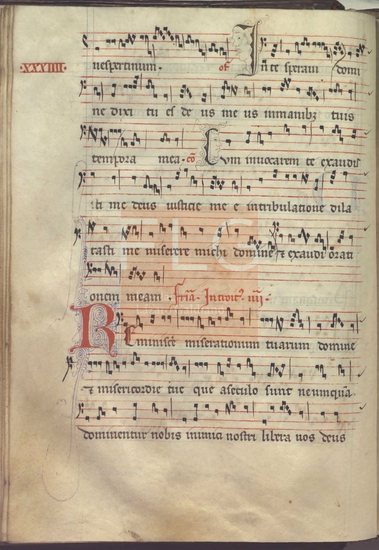 XXXIIII.
uespertinum. of. In te speraui domi
ne dixi tu es de us me us inmanibz tuis
tempora mea. co Cum inuocarem te exaudis
ti me deus iusticie me e intribulatione dila
tasti me miserere michi domine & exaudi orati
onem meam. Introit
Reminisce miserationum tuarum domine
& misericordie tue que aseculo sunt neunquã
dominentur nobis inimici nostri libera nos deus